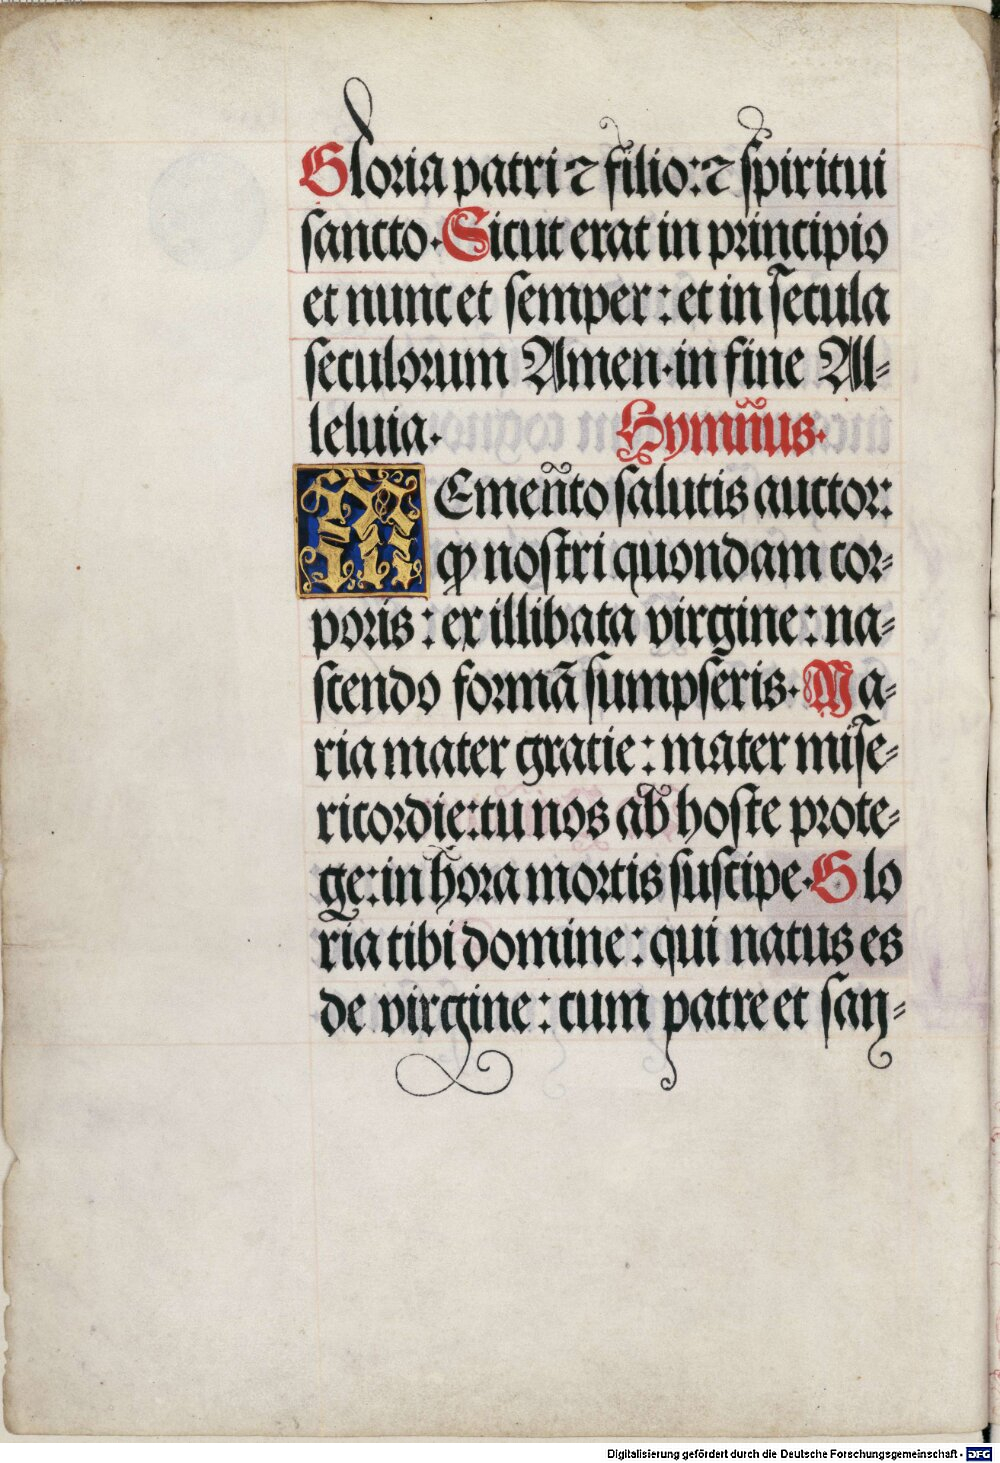 Gloria patri ⁊ filio: ⁊ spiritui
sancto. Sicut erat in principio
et nunc et semper: et in secula
seculorum Amen. in fine Al-
leluia. Hymñus.
MEmeñto salutis auctor:
ꝙ nostri quondam cor-
poris: ex illibata virgine: na-
scendo formã sumpseris. Ma-
ria mater gratie: mater mise-
ricordie: tu nos ab hoste prote-
ge: in hora mortis suscipe. Glo
ria tibi domine: qui natus es
de virgine: cum patre et san-
Digitalisierung gefördert durch die Deutsche Forschungsgemeinschaft - DFG